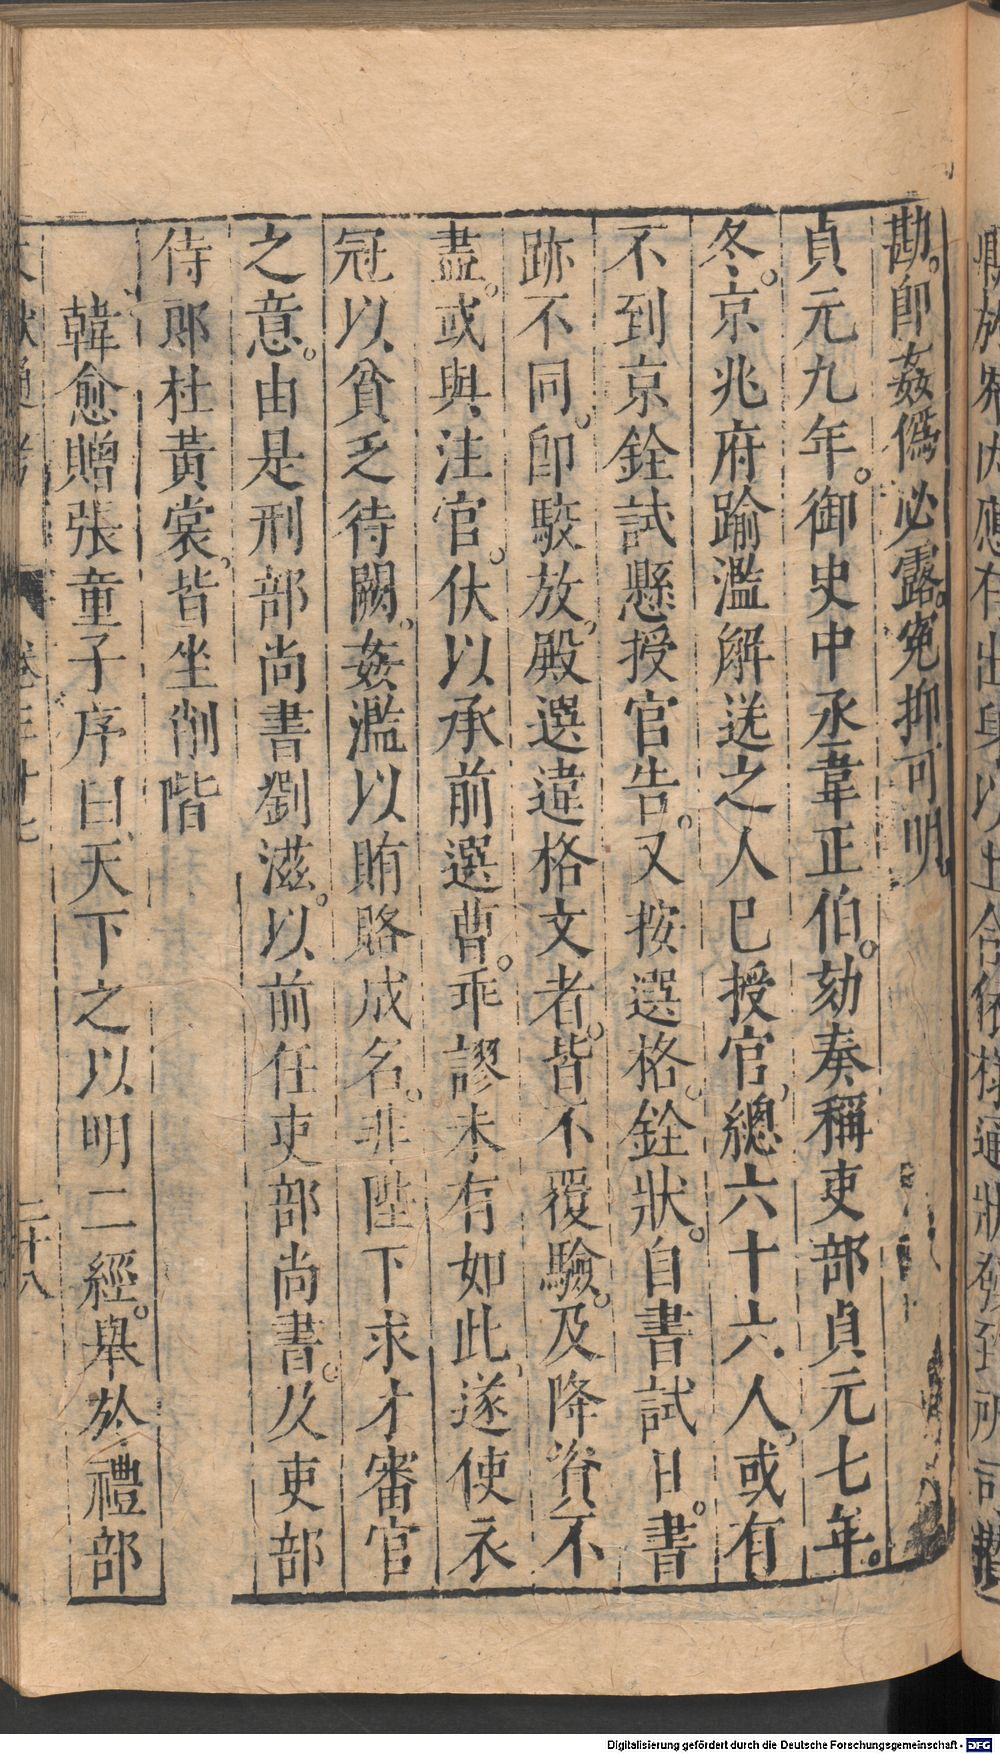 勘。卽姦僞必露。寃抑可明。
貞元九年。御史中丞韋正伯。劾奏稱吏部貞元七年。
冬。京兆府踰濫解送之人已授官。總六十六人。或有
不到京銓試懸授官告。又按選格。銓狀。自書試日。書
跡不同。卽駮放。殿選違格文者。皆不覆驗。及降資不
盡。或與注官。伏以承前選曹。乖謬未有如此。遂使衣
冠以貧乏待闕。姦濫以賄賂成名。非陛下求才審官
之意。由是刑部尚書劉滋。以前任吏部尚書。及吏部
侍郎杜黃裳。皆坐削階
韓愈贈張童子序曰。天下之以明二經。舉於禮部
文獻通考 卷三十七 二十八
Digitalisierung gefördert durch die Deutsche Forschungsgemeinschaft - DFG